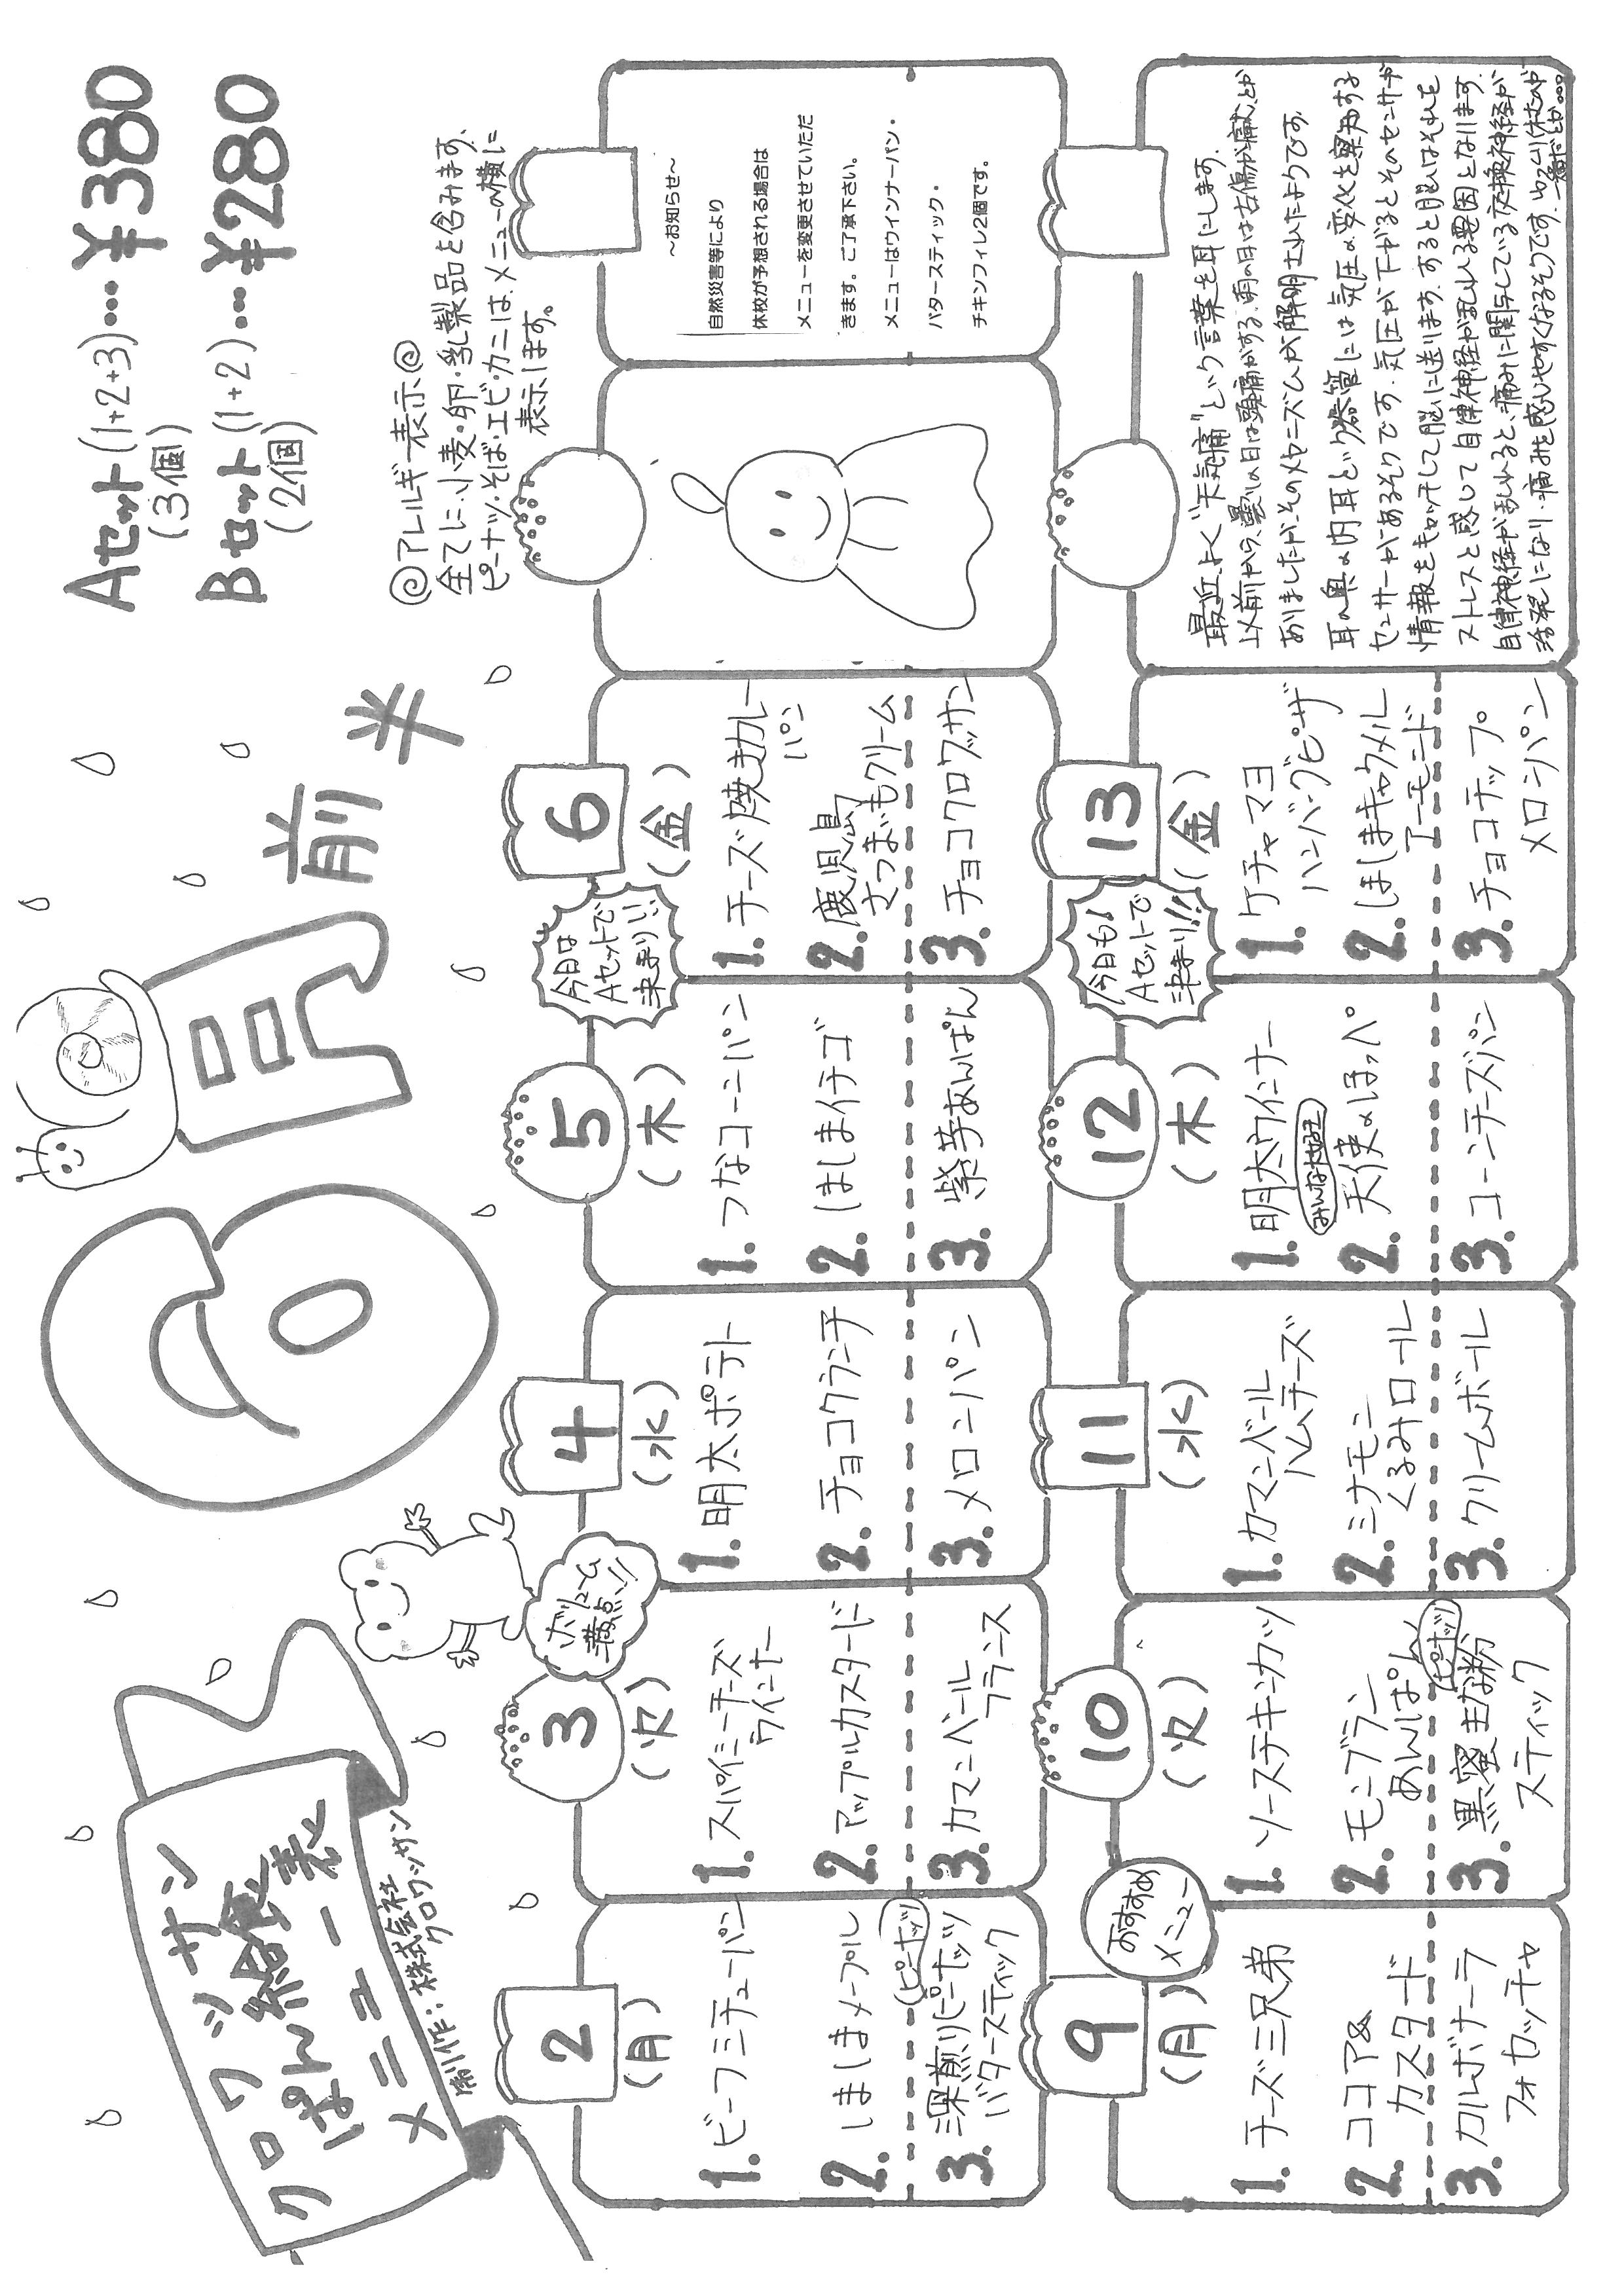 クロワッサン
ぱん給食表
メニュー
制作：株式会社
クロワッサン
6月
前半
Aセット(1+2+3)…¥380
(3個)
Bセット(1+2)…¥280
(2個)
◎アレルギー表示◎
全てに、小麦・卵・乳製品を含みます。
ピーナッツ・そば・エビ・カニはメニューの横に
表示します。
2
(月)
1.ビーフシチューパン
2.しましまメープル
(ピーナッツ)
3.深煎りピーナッツ
バタースティック
ボリューム
満点!!
3
(火)
1.スパイシーチーズ
ウインナー
2.アップルカスタード
3.カマンベール
フランス
4
(水)
1.明太ポテト
2.チョコクランチ
3.メロンパン
5
(木)
1.つなコーンパン
2.しましまイチゴ
3.紫芋あんぱん
今日は
Aセットで
決まり!!
6
(金)
1.チーズ焼きカレー
パン
2.鹿児島
さつまいもクリーム
3.チョコクロワッサン
～お知らせ～
自然災害等により
休校が予想される場合は
メニューを変更させていただ
きます。ご了承下さい。
メニューはウインナーパン・
バタースティック・
チキンフィレ2個です。
9
(月)
おすすめ
メニュー
1.チーズ三兄弟
2.ココア&
カスタード
3.カルボナーラ
フォカッチャ
10
(火)
1.ソースチキンカツ
2.モンブラン
あんぱん
(ピーナッツ)
3.黒蜜きな粉
スティック
11
(水)
1.カマンベール
ハムチーズ
2.シナモン
くるみロール
3.クリームボール
12
(木)
1.明太ウインナー
2.天使のほっぺ
3.コーンチーズパン
今日も!
Aセットで
決まり!!
13
(金)
1.ケチャマヨ
ハンバーグピザ
2.しましまキャラメル
アーモンド
3.チョコチップ
メロンパン
最近よく"天気痛"という言葉を耳にします。
以前から、曇りの日は頭痛がする、雨の日は古傷が痛むとか
ありましたが、そのメカニズムが解明されたようです。
耳の奥の内耳という器管には気圧の変化を察知する
センサーがあるそうです。気圧が下がるとそのセンサーが
情報をキャッチして脳に送ります。すると脳はそれを
ストレスと感じて自律神経が乱れる要因となります。
自律神経が乱れると、痛みに関与している交換神経が
活発になり、痛みを感じやすくなるそうです。ゆっくり休むのが
一番だとか…。